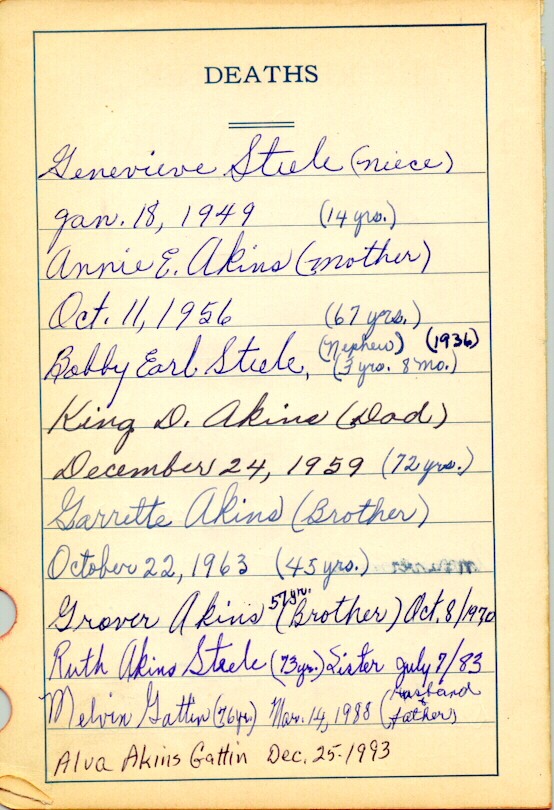 DEATHS
Genevieve Steele (niece)
Jan. 18, 1949 (14 yrs.)
Annie E. Akins (mother)
Oct. 11, 1956 (67 yrs.)
Bobby Earl Steele, (Nephew) (1936) (3 yrs. 8 mo.)
King D. Akins (Dad)
December 24, 1959 (72 yrs.)
Garrette Akins (Brother)
October 22, 1963 (45 yrs.)
Grover Akins 57 yr. (Brother) Oct. 8/1970
Ruth Akins Steele (73 yr.) Sister July 7/83
Melvin Gattin (76 yr) Mar. 14, 1988 (Husband & father)
Alva Akins Gattin Dec. 25-1993